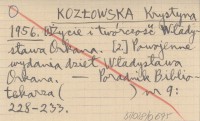 KOZŁOWSKA Krystyna
1956. Życie i twórczość Włady-
sława Orkana. [2] Powojenne
wydania dzieł Władysława
Orkana. — Poradnik Biblio-
tekarza ( ) nr 9:
228-233.